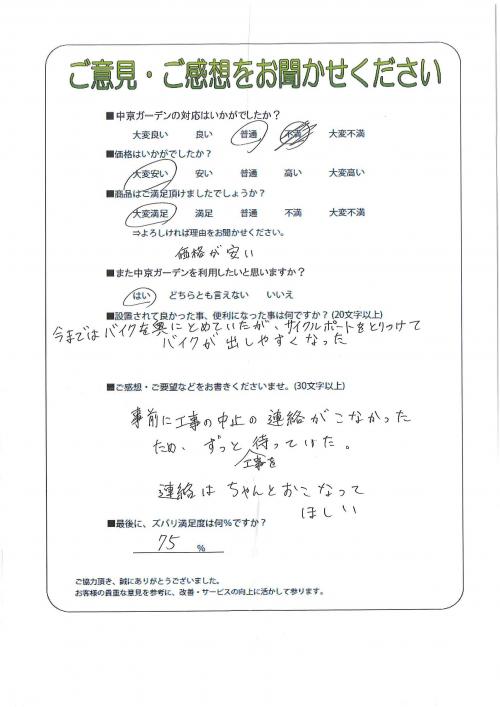 ご意見・ご感想をお聞かせください
■中京ガーデンの対応はいかがでしたか?
大変良い 良い 普通 不満 大変不満
■価格はいかがでしたか?
大変安い 安い 普通 高い 大変高い
■商品はご満足頂けましたでしょうか?
大変満足 満足 普通 不満 大変不満
⇒よろしければ理由をお聞かせください。
価格が安い
■また中京ガーデンを利用したいと思いますか?
はい どちらとも言えない いいえ
■設置されて良かった事、便利になった事は何ですか? (20文字以上)
今まではバイクを奥にとめていたが、サイクルポートをとりつけて
バイクが出しやすくなった
■ご感想・ご要望などをお書きくださいませ。(30文字以上)
事前に工事の中止の連絡がこなかった
ため、ずっと待っていた。
工事を
連絡はちゃんとおこなって
ほしい
■最後に、ズバリ満足度は何%ですか?
75 %
ご協力頂き、誠にありがとうございました。
お客様の貴重な意見を参考に、改善・サービスの向上に活かして参ります。